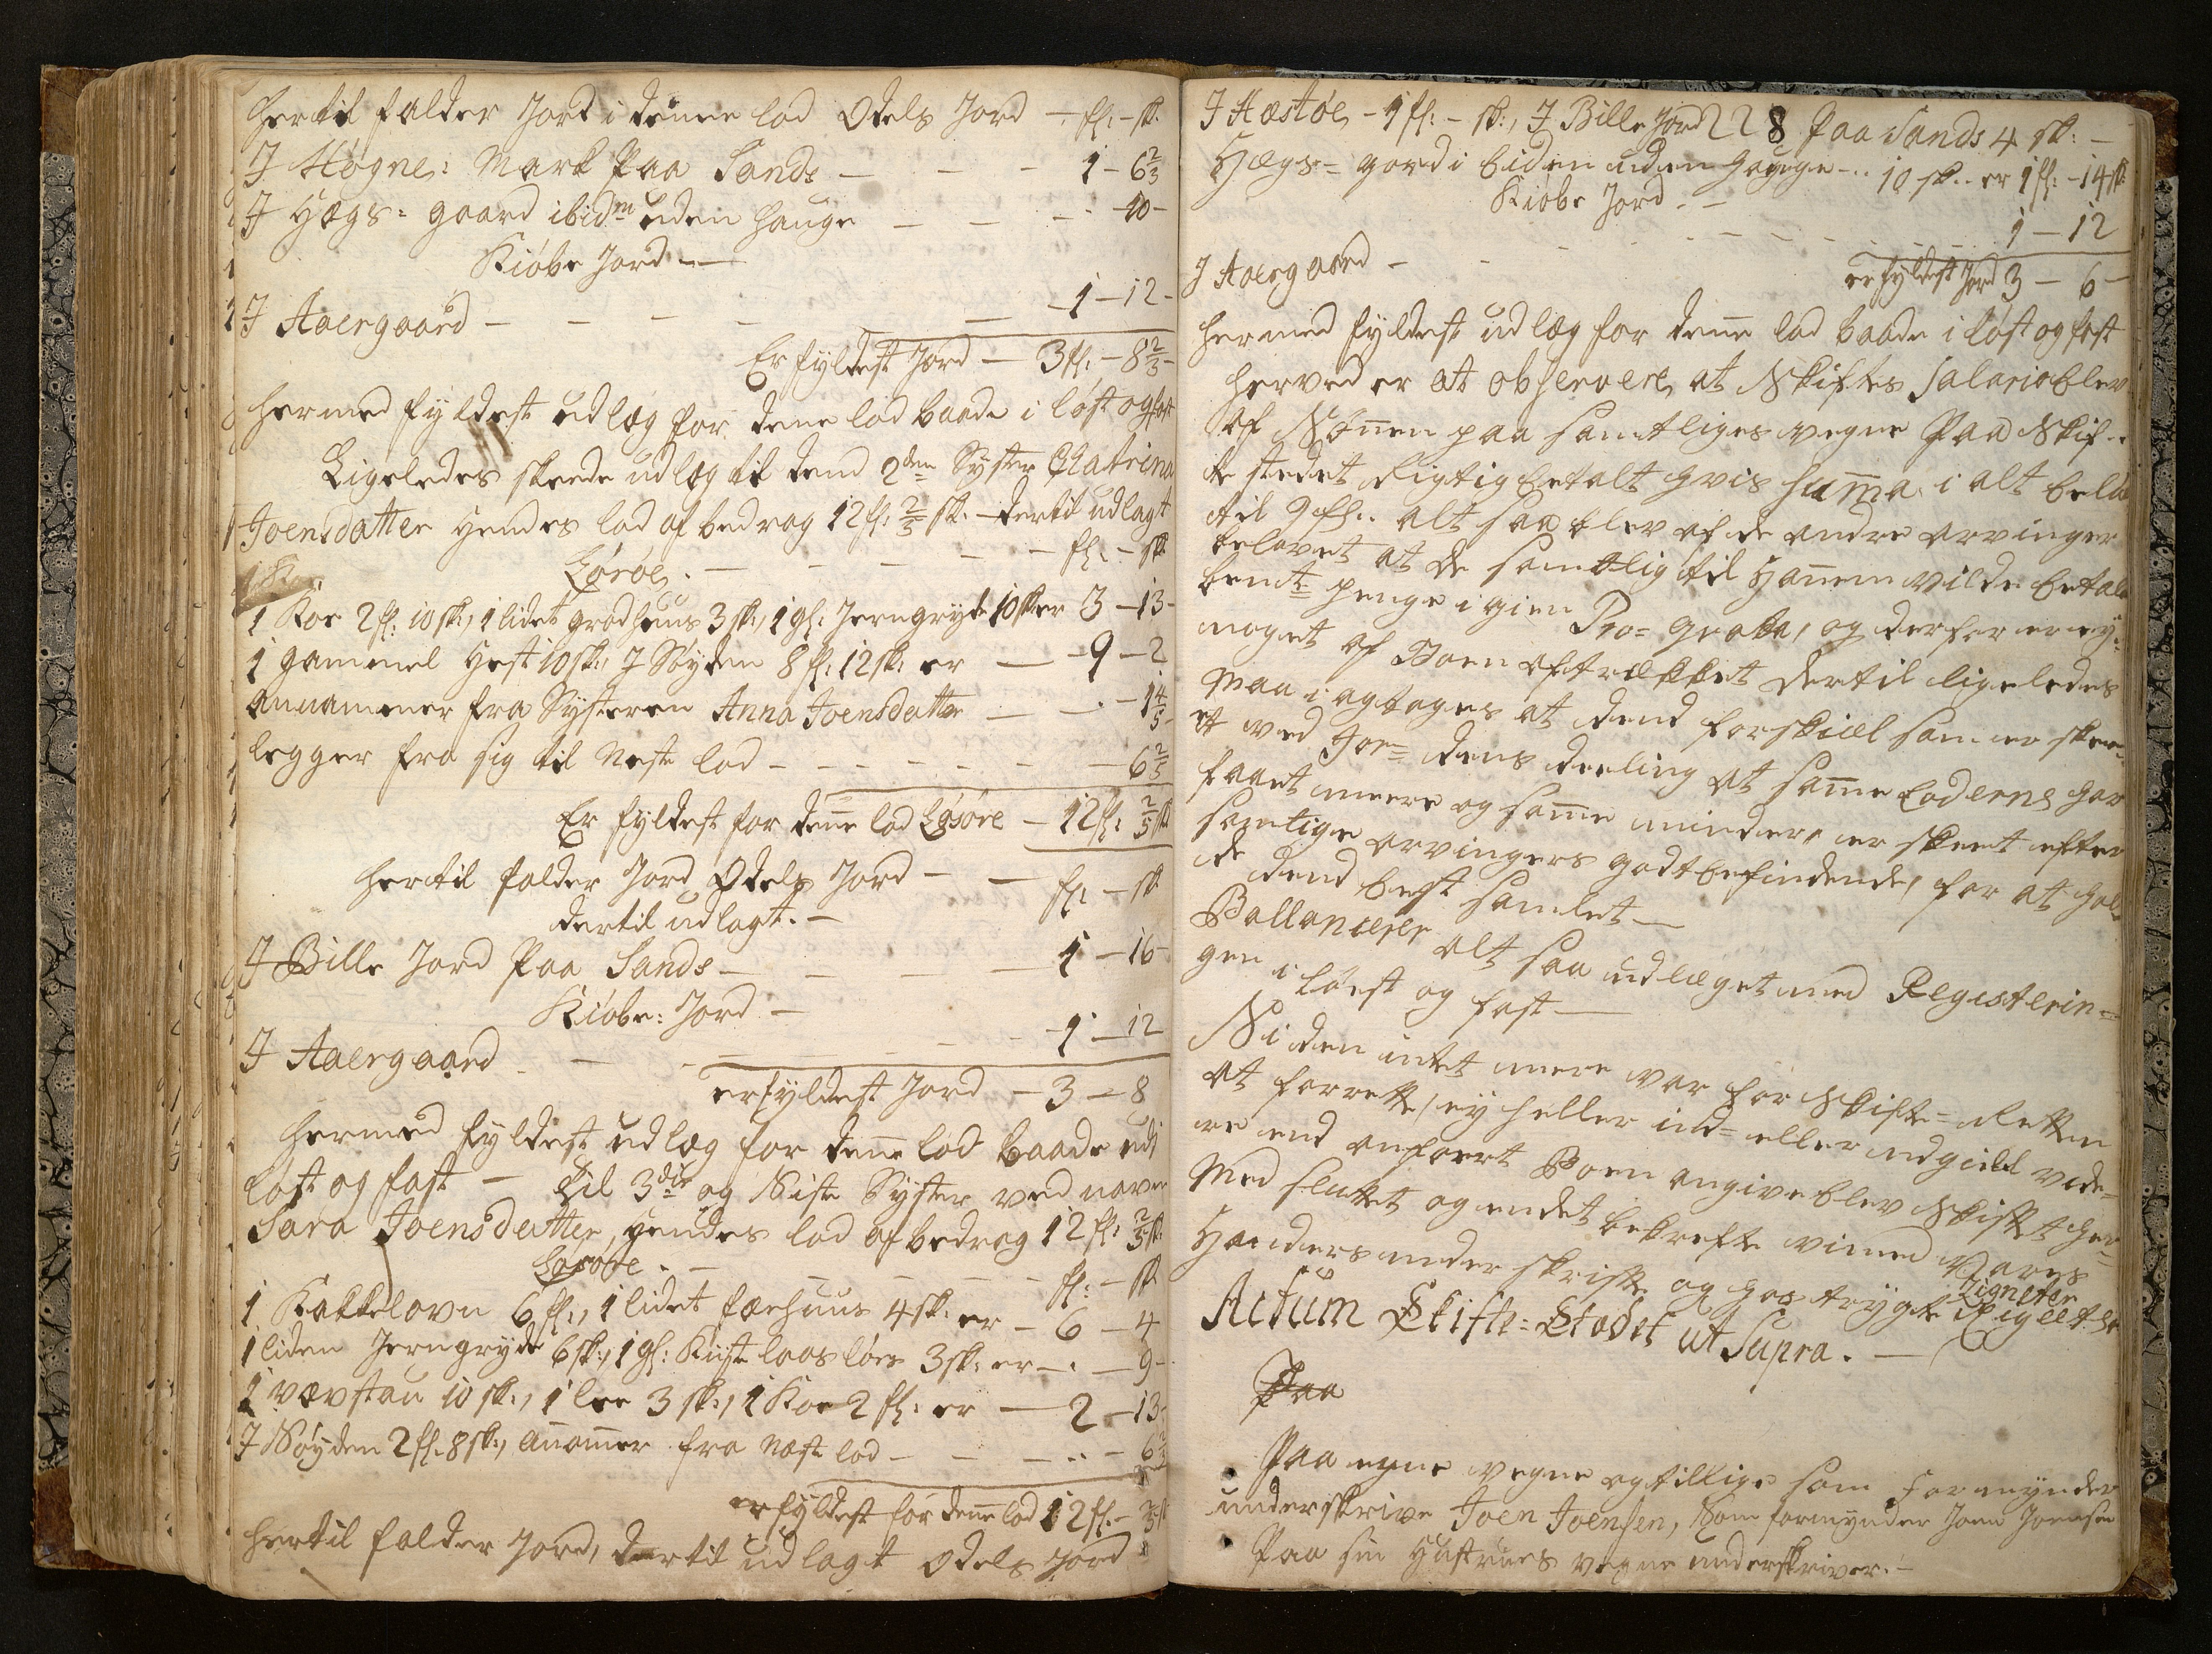 hertil falder Jord i denne lod Odels Jord - fl: - sk:
J Høgne: Mark Paa Sands - - - 1 - 6 2/3
J Hægs= gaard ibidm uden hauge - - - 10 -
Kiøbe Jord - -
J Aaergaard - - - - - 1 - 12 -
Er fyldest Jord - 3 fl: - 8 2/3 -
hermed fyldest udlæg for dene lod baade i løst og fast
Ligeledes skeede udlæg til dend 2den Syster Chatrina
Joensdatter hendes lod af bedrag 12 fl: 2/5 sk: - dertil udlagt
Løsøe. - - - - - - fl: - sk:
1 Koe 2 fl: 10 sk:, 1 lidet gradhuus 3 sk:, 1 gl: Jerngryde 10 sk: er 3 - 13 -
1 gammel Hest 10 sk:, J Søyden 8 fl: 12 sk: er - - 9 - 2
annammer fra Systeren Anna Joensdatter - - . - 1 4/5 -
legger fra sig til Neste lod - - - - - - - 6 2/5
Er fyldest for denne lod Løsøre - 12 fl: 2/5 sk:
hertil falder Jord Odels Jord - - fl: - sk:
dertil udlagt. -
J Bille Jord Paa Sands - - - - 1 - 16 -
Kiøbe: Jord -
J Aaergaard - - - - - 1 - 12
er fyldest Jord - 3 - 8
hermed fyldest udlæg for denne lod baade udi
løst og fast - til 3die og Siste Syster ved navn
Sara Joensdatter, hendes lod af bedrag 12 fl: 2/5 sk:
Løsøre. - - - - fl: - sk:
1 Kakkelovn 6 fl:, 1 lidet færhuus 4 sk: er - 6 - 4
1 liden Jerngryde 6 sk:, 1 gl: Kiiste laas løes 3 sk: er - . - 9 -
1 Vævstau 10 sk:, 1 lee 3 sk:, 1 Koe 2 fl: er - 2 - 13 -
J Søyden 2 fl: 8 sk:, annammer fra Næst lod - - - . . - 6 2/5
er fyldest for denne lod 12 fl: - 2/5 sk:
hertil falder Jord, dertil udlagt Odels Jord
J Hæstøe - 1 fl: - sk:, J Bille Jord 228 Paa Sands 4 sk: -
Hægs= gord i bidem uden hauge - . . 10 sk: er 1 fl: - 14 sk:
Kiøbe Jord. - -
J Aaergaard - - - - - - - 1 - 12
er fyldest Jord 3 - 6 -
hermed fyldest udlæg for denne lod baade i løst og fast
herved er at observere, at Skiftes Salario blev
af Sønnen paa samtliges vegne Paa Skif=
te stedet Rigtig betalt hvis Suma i alt belø
til 9 fl: alt saa blev af de andre arvinger
belovet at de samtlig til hannem vilde betale
bemt penge igien Pro= qvota, og derfor er ey
noget af Boen aftrækket dertil ligeledes
Maa i agtages at dend forskiæl som er skee=
et ved Jor= dens deeling at some Loderne har
faaet meere og some minder, er skeet efter
samtlige arvingers godtbefindende, for at hol=
de dend best samlet -
Ballancerer alt saa udlæget med Registerin=
gen i løest og fast -
Siden intet mere var for Skifte= Retten
at forrette, ey heller ind= eller udgield vide=
re end anført Boen angive blev Skiftet her=
Med sluttet og endet bekrefte vi med Vores
Hænders under skrifft og hos trygte Zigneter
Actum Skifte= Stædet ut Supra. -
Paa
Paa egne vegne og tillige som Formynder
underskrive Joen Joensen, Som formynder Joen Joensen
Paa sin Hustrues vegne underskriver. -